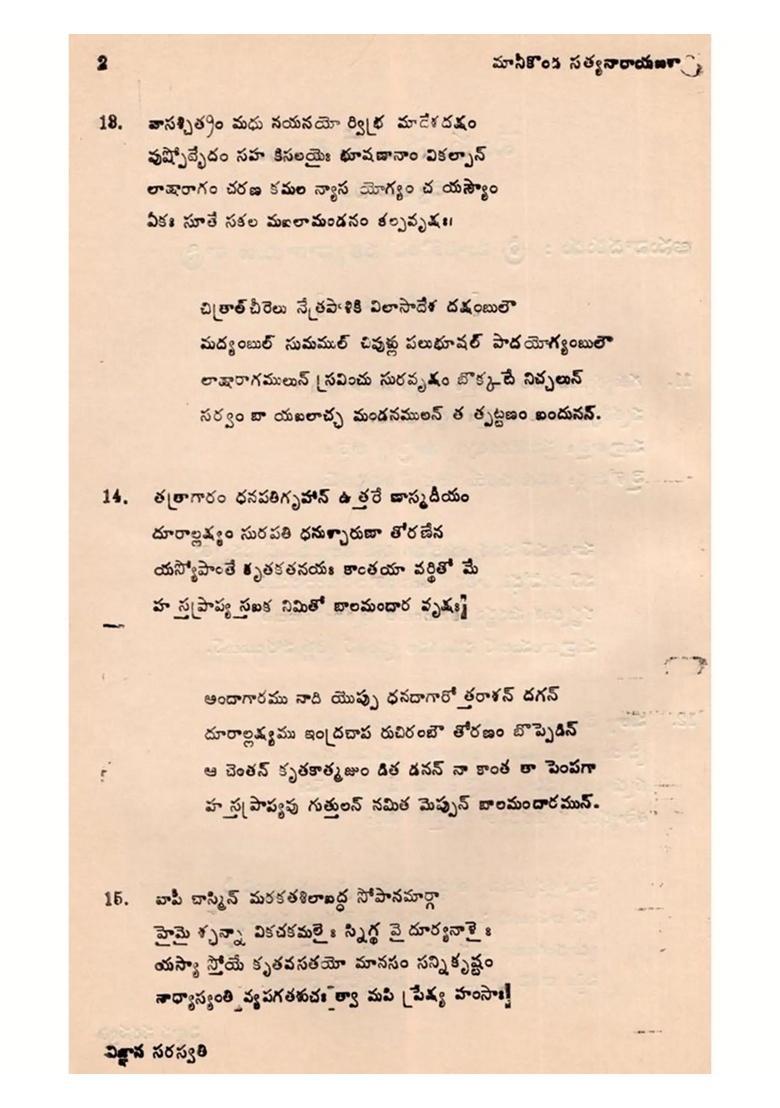 2
మానీకొండ సత్యనారాయణశా
13. వాసశ్చిత్రం మధు నయనయో ర్విభ్ర మాదేశదక్షం
పుష్పోద్భేదం సహ కిసలయైః భూషణానాం వికల్పాన్
లాక్షారాగం చరణ కమల న్యాస యోగ్యం చ యస్యాం
ఏకః సూతే సకల మబలామండనం కల్పవృక్షః॥
చిత్రాల్ చీరెలు నేత్రపాళికి విలాసాదేశ దక్షంబులౌ
మద్యంబుల్ సుమముల్ చివుళ్లు పలుభూషల్ పాదయోగ్యంబులౌ
లాక్షారాగములున్ స్రవించు సురవృక్షం బొక్కటే నిచ్చలున్
సర్వం బా యబలాచ్ఛ మండనములన్ త త్పట్టణం బందునన్.
14. తత్రాగారం ధనపతిగృహాన్ ఉత్తరే ణాస్మదీయం
దూరాల్లక్ష్యం సురపతి ధనుశ్చారుణా తోరణేన
యస్యోపాంతే కృతకతనయః కాంతయా వర్థితో మే
హస్తప్రాప్య స్తబక నిమితో బాలమందార వృక్షః|
అందాగారము నాది యొప్పు ధనదాగారోత్తరాశన్ దగన్
దూరాల్లక్ష్యము ఇంద్రచాప రుచిరంబౌ తోరణం బొప్పెడిన్
ఆ చెంతన్ కృతకాత్మజుం డిత డనన్ నా కాంత తా పెంపగా
హస్తప్రాప్యపు గుత్తులన్ నమిత మెప్పున్ బాలమందారమున్.
15. వాపీ చాస్మిన్ మరకతశిలాబద్ధ సోపానమార్గా
హైమై శ్ఛన్నా వికచకమలైః స్నిగ్థ వైదూర్యనాళైః
యస్యా స్తోయే కృతవసతయో మానసం సన్నికృష్టం
నాధ్యాస్యంతి వ్యపగతశుచః త్వా మపి ప్రేక్ష్య హంసాః|
విజ్ఞాన సరస్వతి